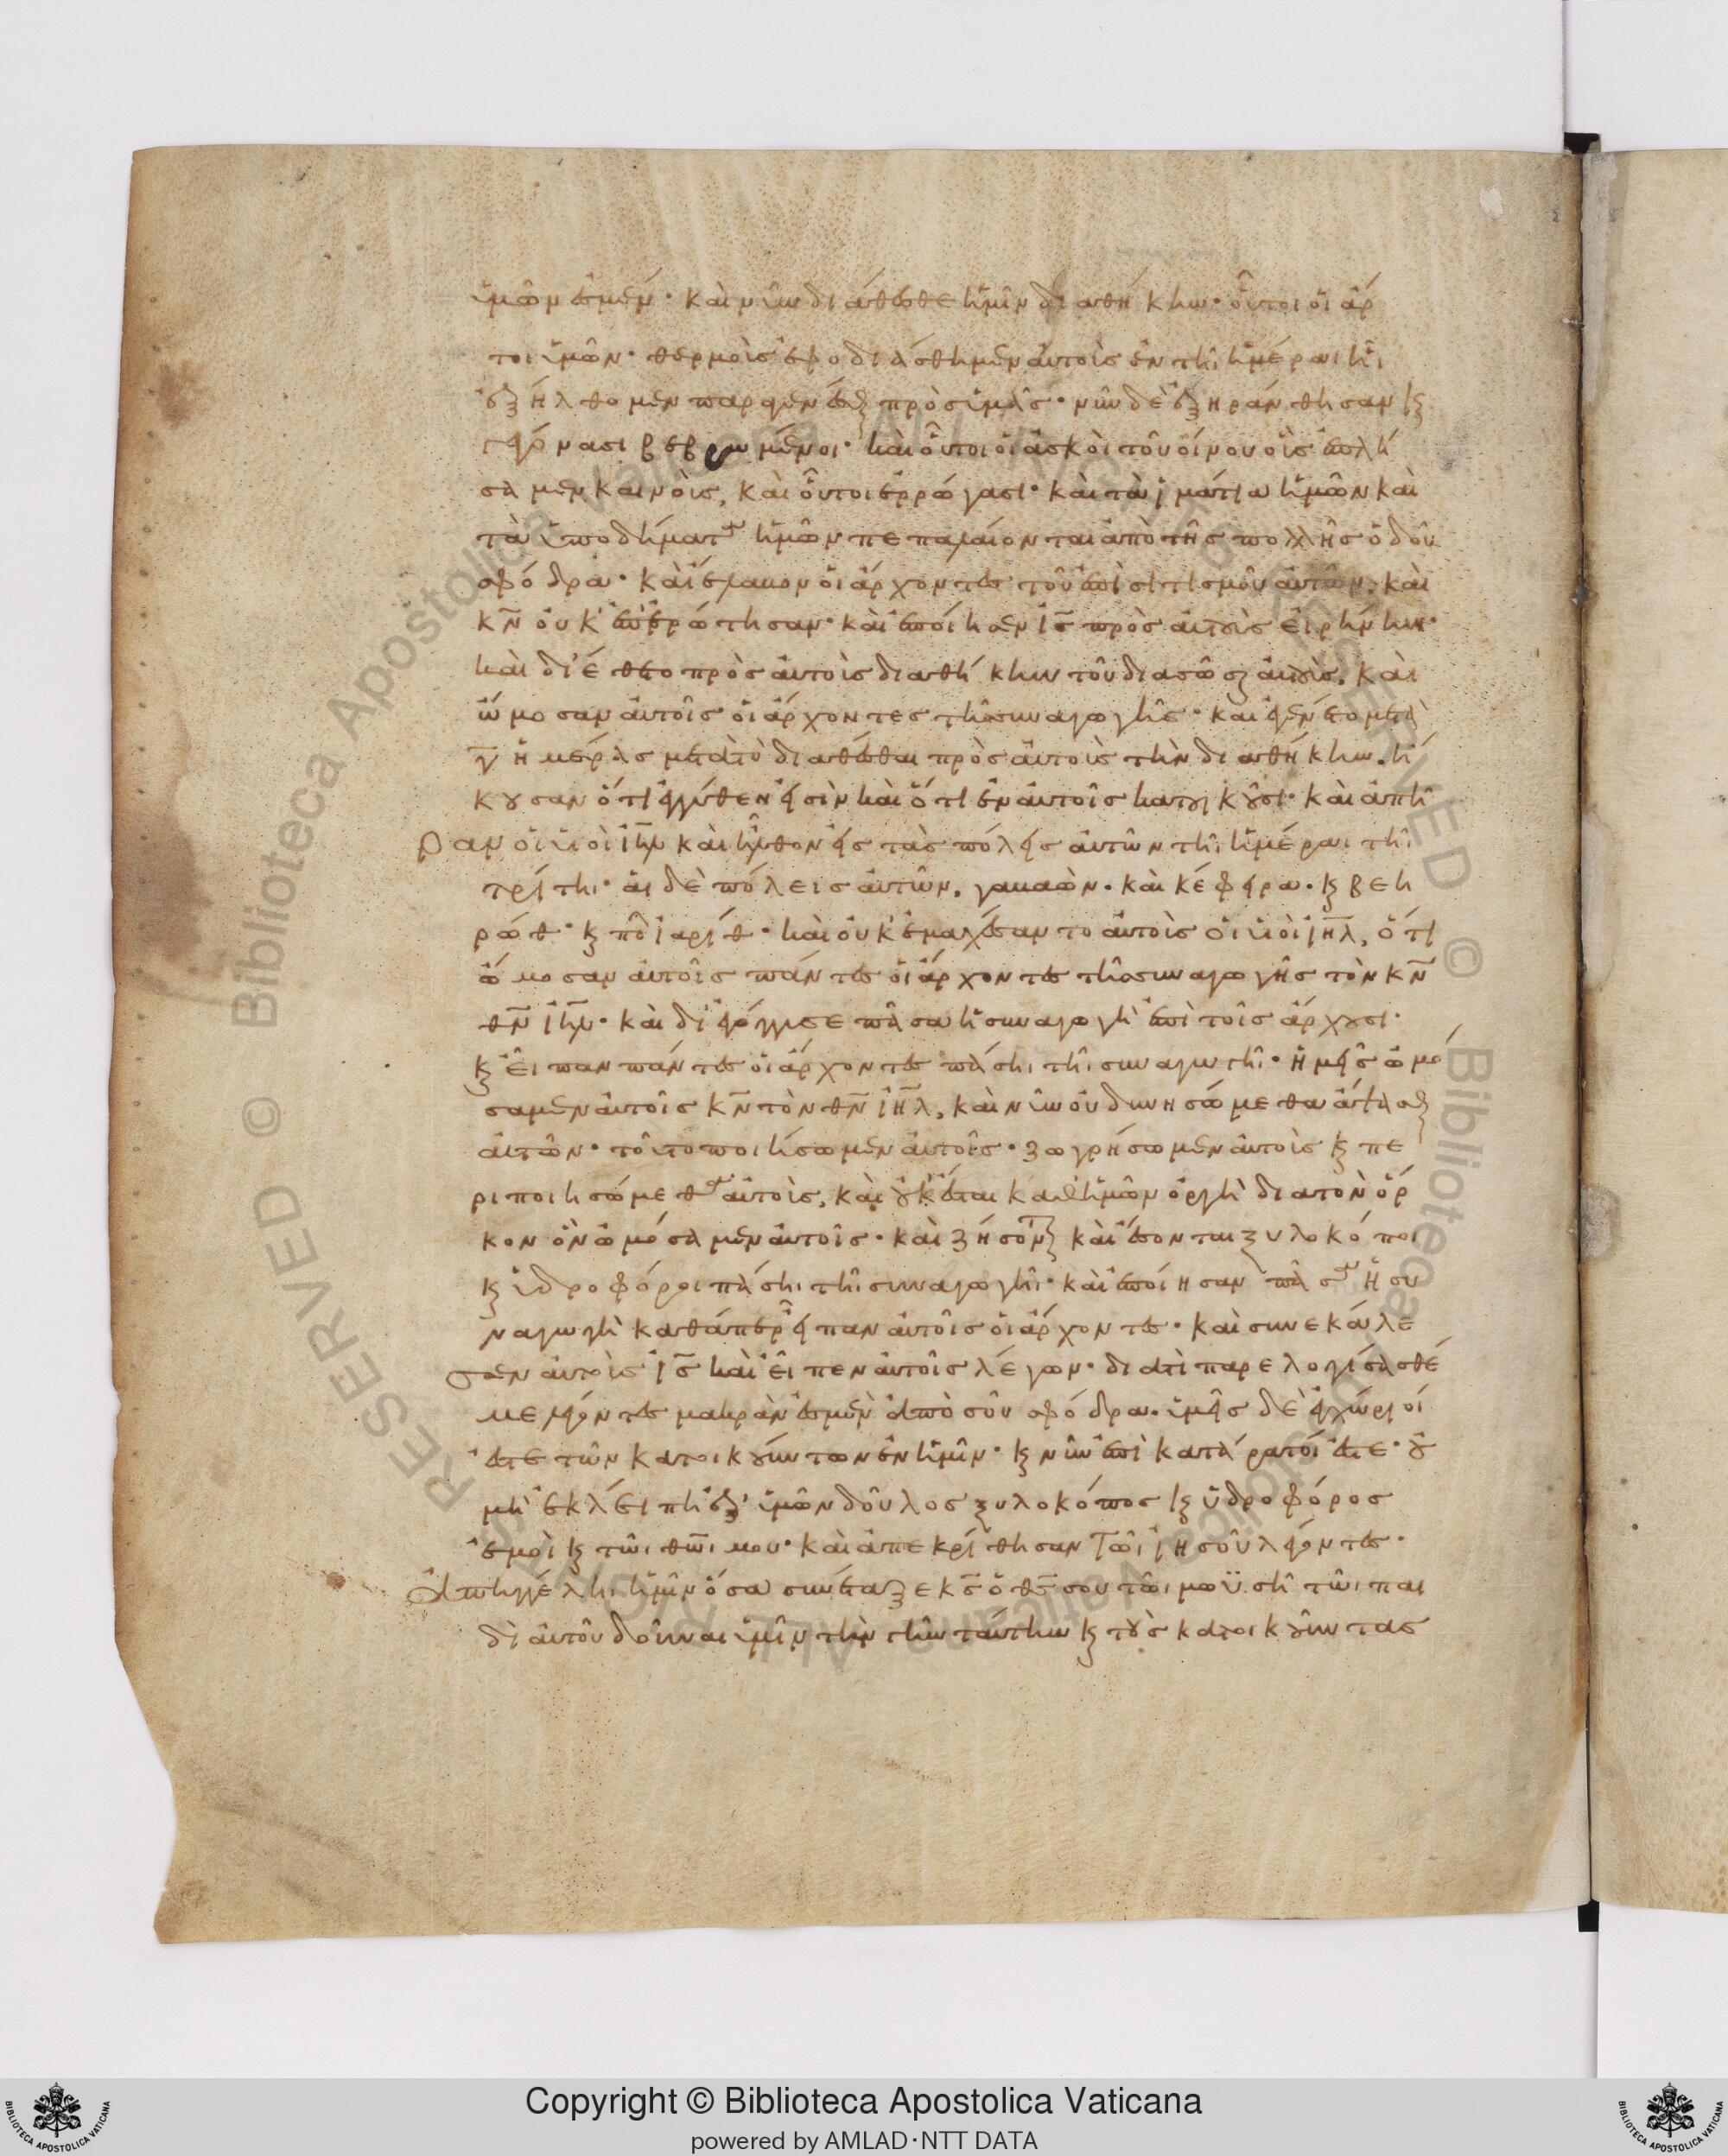 ὑμῶν ἐσμέν· καὶ νῦν διάθεσθε ἡμῖν διαθήκην· οὗτοι οἱ ἄρ
τοι ἡμῶν· θερμοὺς ἐφοδιάσθημεν αὐτοὺς ἐν τῆι ἡμέραι ἧι
ἐξήλθομεν παραγενέσθαι πρὸς ὑμᾶς· νῦν δὲ ἐξηράνθησαν κ
γεγόνασι βεβρωμένοι· καὶ οὗτοι οἱ ἀσκοὶ τοῦ οἴνου οὓς ἐπλή
σαμεν καινοὺς, καὶ οὗτοι ἐρρώγασι· καὶ τὰ ἱμάτια ἡμῶν καὶ
τὰ ὑποδήματα ἡμῶν πεπαλαίονται ἀπὸ τῆς πολλῆς ὁδοῦ
σφόδρα· καὶ ἔλαβον οἱ ἄρχοντες τοῦ ἐπισιτισμοῦ αὐτῶν, καὶ
κν οὐκ ἐπερώτησαν· καὶ ἐποίησεν ις πρὸς αὐτοὺς εἰρήνην·
καὶ διέθετο πρὸς αὐτοὺς διαθήκην τοῦ διασῶσαι αὐτοὺς, καὶ
ὤμοσαν αὐτοῖς οἱ ἄρχοντες τῆς συναγωγῆς· καὶ ἐγένετο μετὰ
γ ἡμέρας μετὰ τὸ διαθέσθαι πρὸς αὐτοὺς τὴν διαθήκην. ἤ
κουσαν ὅτι ἐγγύθεν εἰσὶν καὶ ὅτι ἐν αὐτοῖς κατοικοῦσι· καὶ ἀπῆ
ραν οἱ υἱοὶ ιηλ καὶ ἦλθον εἰς τὰς πόλεις αὐτῶν τῆι ἡμέραι τῆι
τρίτηι· αἱ δὲ πόλεις αὐτῶν. γαβαὼν· καὶ κέφειρα· κ βεη
ρώθ· κ πο ιαρίθ· καὶ οὐκ ἐμαχέσαντο αὐτοῖς οἱ υἱοὶ ιηλ, ὅτι
ὤμοσαν αὐτοῖς πάντες οἱ ἄρχοντες τῆς συναγωγῆς τὸν κν
θν ιηλ· καὶ διεγόγγυσε πᾶσα ἡ συναγωγὴ ἐπὶ τοῖς ἄρχουσι·
κ εἶπαν πάντες οἱ ἄρχοντες πάσηι τῆι συναγωγῆι· ἡμεῖς ὠμό
σαμεν αὐτοῖς κν τὸν θν ιηλ, καὶ νῦν οὐ δυνησόμεθα ἅψασθαι
αὐτῶν· τοῦτο ποιήσωμεν αὐτοῖς· ζωγρήσωμεν αὐτοὺς κ πε
ριποιησώμεθα αὐτοὺς, καὶ οὐκ ἔσται καθ ἡμῶν ὀργὴ διὰ τὸν ὅρ
κον ὃν ὠμόσαμεν αὐτοῖς· καὶ ζήσονται καὶ ἔσονται ξυλοκόποι
κ ὑδροφόροι πάσηι τῆι συναγωγῆι· καὶ ἐποίησαν πᾶσα ἡ συ
ναγωγὴ καθάπερ εἶπαν αὐτοῖς οἱ ἄρχοντες· καὶ συνεκάλε
σεν αὐτοὺς ις καὶ εἶπεν αὐτοῖς λέγων· διατὶ παρελογίσασθέ
με λέγοντες μακρὰν ἐσμὲν ἀπὸ σοῦ σφόδρα· ὑμεῖς δὲ ἐγχώριοί
ἐστε τῶν κατοικούντων ἐν ἡμῖν· κ νῦν ἐπικατάρατοί ἐστε· οὐ
μὴ ἐκλείπηι ἐξ ὑμῶν δοῦλος ξυλοκόπος κ ὑδροφόρος
ἐμοὶ κ τῶι θωι μου· καὶ ἀπεκρίθησαν τῶι ιησοῦ λέγοντες·
ἀπηγγέληι ἡμῖν ὅσα συνέταξε κς ὁ θς σου τῶι μωϋσῆ τῶι παι
δὶ αὐτοῦ δοῦναι ὑμῖν τὴν γῆν ταύτην κ τοὺς κατοικοῦντας
Copyright © Biblioteca Apostolica Vaticana
powered by AMLAD·NTT DATA